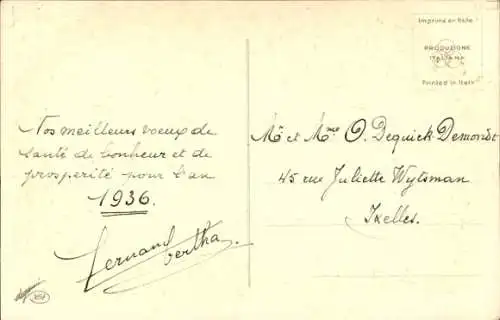 Imprimé en Italie
PRODUZIONE
ITALIANA
Printed in Italy
Nos meilleurs voeux de
santé de bonheur et de
prosperité pour l'an
1936.
Fernand Bertha.
Mr et Mme O. Dequick Demondt
45 rue Juliette Wytsman
Ixelles.